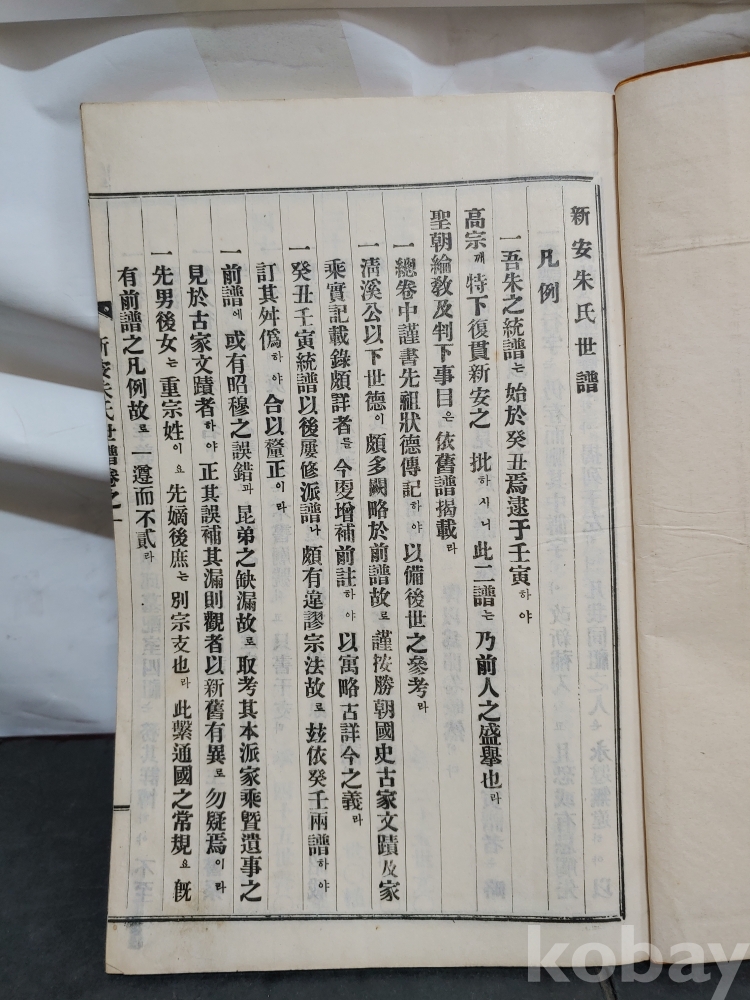 新安朱氏世譜
凡例
一吾朱之統譜는始於癸丑焉逮于壬寅하야
高宗께特下復貫新安之 批하시니此二譜는乃前人之盛擧也라
聖朝綸敎及判下事目은依舊譜揭載라
一總卷中謹書先祖狀德傳記하야以備後世之參考라
一淸溪公以下世德이頗多闕略於前譜故로謹按勝朝國史古家文蹟及家
乘實記載錄頗詳者를今更增補前註하야以寓略古詳今之義라
一癸丑壬寅統譜以後屢修派譜나頗有違謬宗法故로玆依癸壬兩譜하야
訂其舛僞하야合以釐正이라
一前譜에或有昭穆之誤錯과昆弟之缺漏故로取考其本派家乘曁遺事之
見於古家文蹟者하야正其誤補其漏則觀者以新舊有異로勿疑焉이라
一先男後女는重宗姓이요先嫡後庶는別宗支也라此繫通國之常規요旣
有前譜之凡例故로一遵而不貳라
新安朱氏世譜卷之一
kobay